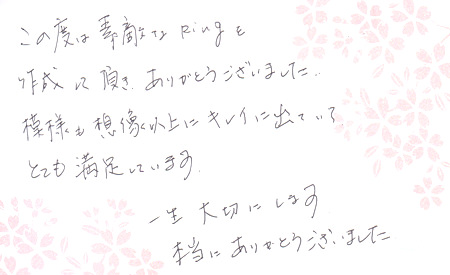 この度は素敵な Ringを
作成して頂き、ありがとうございました。
模様も想像以上にキレイに出ていて
とても満足しています。
一生大切にします
本当にありがとうございました